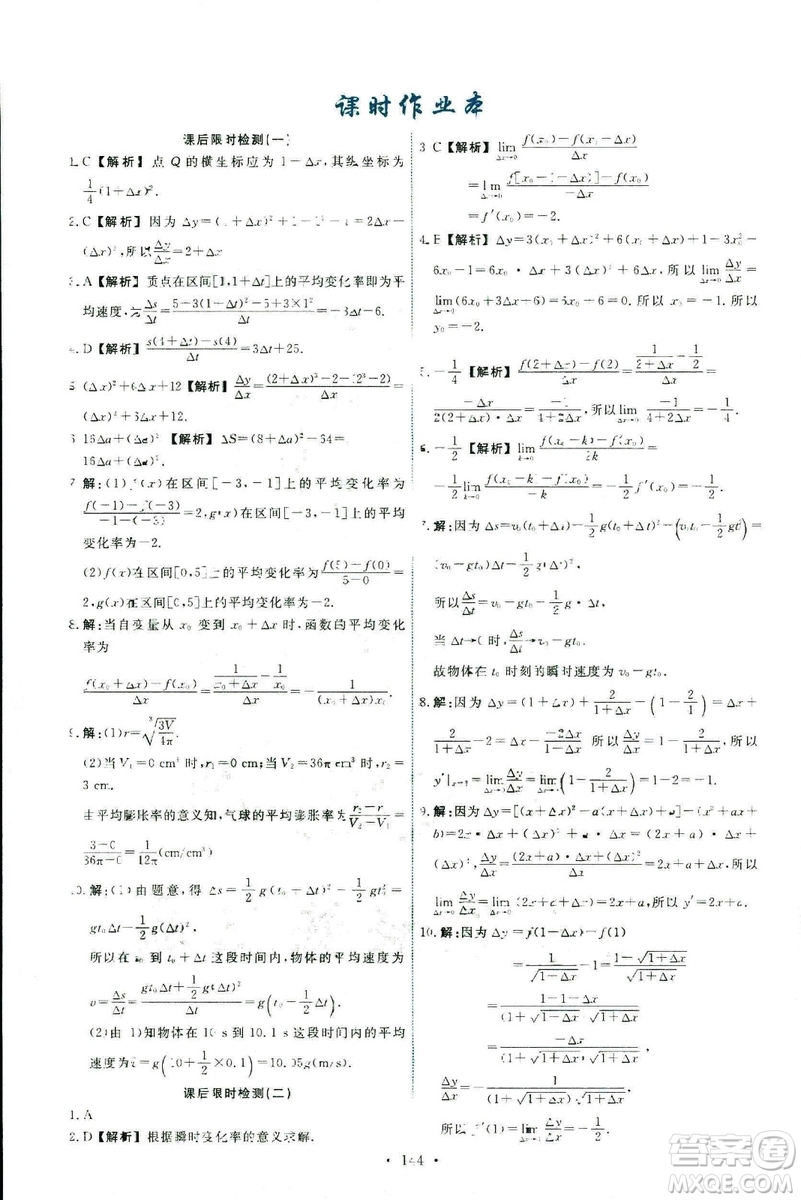 课时作业本
课后限时检测(一)
1. C 【解析】 点 Q 的横坐标应为 1+Δx,其纵坐标为
1/4(1+Δx)².
2. C 【解析】 因为 Δy=(1+Δx)²+1-1²-1=2Δx+
(Δx)²,所以 Δy/Δx=2+Δx.
3. A 【解析】 质点在区间[1,1+Δt]上的平均变化率即为平
均速度, Δs/Δt=(5-3(1+Δt)²-5+3×1²)/Δt=-3Δt-6.
4. D 【解析】 (s(4+Δt)-s(4))/Δt=3Δt+25.
5. (Δx)²+6Δx+12 【解析】 Δy/Δx=((2+Δx)³-2-(2³-2))/Δx=
(Δx)²+6Δx+12.
6. 16Δa+(Δa)² 【解析】 ΔS=(8+Δa)²-64=
16Δa+(Δa)².
7. 解:(1)f(x)在区间[-3,-1]上的平均变化率为
(f(-1)-f(-3))/(-1-(-3))=2,g(x)在区间[-3,-1]上的平均
变化率为-2.
(2)f(x)在区间[0,5]上的平均变化率为 (f(5)-f(0))/(5-0)=
2,g(x)在区间[0,5]上的平均变化率为-2.
8. 解:当自变量从 x₀ 变到 x₀+Δx 时,函数的平均变化
率为
(f(x₀+Δx)-f(x₀))/Δx=(1/(x₀+Δx)-1/x₀)/Δx=-1/((x₀+Δx)x₀)
9. 解:(1)r=∛(3V/4π).
(2)当 V₁=0 cm³ 时,r₁=0;当 V₂=36π cm³ 时,r₂=
3 cm.
由平均膨胀率的意义知,气球的平均膨胀率为 (r₂-r₁)/(V₂-V₁)=
(3-0)/(36π-0)=1/12π(cm/cm³)
10. 解:(1)由题意,得 Δs=1/2 g(t₀+Δt)²-1/2 gt₀²=
gt₀Δt+1/2 g(Δt)²,
所以物体在 t₀ 到 t₀+Δt 这段时间内的平均速度为
v=Δs/Δt=(gt₀Δt+1/2 g(Δt)²)/Δt=g(t₀+1/2Δt)
(2)由(1)知物体在 10 s 到 10.1 s 这段时间内的平均
速度为 v=g(10+1/2×0.1)=10.05g(m/s)
课后限时检测(二)
1. A
2. D 【解析】 根据瞬时变化率的意义求解.
3 C 【解析】 lim(Δx→0) (f(x₀)-f(x₀-Δx))/Δx
=lim(Δx→0) (f[x₀-(-Δx)]-f(x₀))/(-Δx)
=f′(x₀)=-2.
4. B 【解析】 Δy=3(x₀+Δx)²+6(x₀+Δx)-3x₀²-
6x₀=6x₀·Δx+3(Δx)²+6Δx,所以 lim(Δx→0) Δy/Δx=
lim(Δx→0)(6x₀+3Δx+6)=6x₀+6=0. 所以 x₀=-1. 所以
y₀=-3.
5. -1/4 【解析】 (f(2+Δx)-f(2))/Δx=(1/(2+Δx)-1/2)/Δx=
-Δx/(2(2+Δx)·Δx)=-1/(4+2Δx),所以 lim(Δx→0) -1/(4+2Δx)=-1/4.
6. -1/2 【解析】 lim(k→0) (f(x₀-k)-f(x₀))/2k=
-1/2 lim(k→0) (f(x₀-k)-f(x₀))/(-k)=-1/2 f′(x₀)=-1/2.
7. 解:因为 Δs=v₀(t₀+Δt)-1/2 g(t₀+Δt)²-(v₀t₀-1/2 gt₀²)=
(v₀-gt₀)Δt-1/2 g(Δt)²,
所以 Δs/Δt=v₀-gt₀-1/2 g·Δt.
当 Δt→0 时, Δs/Δt→v₀-gt₀.
故物体在 t₀ 时刻的瞬时速度为 v₀-gt₀.
8. 解:因为 Δy=(1+Δx)+2/(1+Δx)-(1+2/1)=Δx+
2/(1+Δx)-2=Δx+(-2Δx)/(1+Δx) 所以 Δy/Δx=1-2/(1+Δx). 所以
y′|ₓ₌₁=lim(Δx→0) Δy/Δx=lim(Δx→0)(1-2/(1+Δx))=-1.
9. 解:因为 Δy=[(x+Δx)²+a(x+Δx)+b]-(x²+ax+
b)=2x·Δx+(Δx)²+a·Δx=(2x+a)·Δx+
(Δx)², Δy/Δx=((2x+a)·Δx+(Δx)²)/Δx=(2x+a)+Δx,所以
lim(Δx→0) Δy/Δx=lim(Δx→0)(2x+a+Δx)=2x+a,所以 y′=2x+a.
10. 解:因为 Δy=f(1+Δx)-f(1)
=1/√(1+Δx)-1=(1-√(1+Δx))/√(1+Δx)
=(1-1-Δx)/((1+√(1+Δx))·√(1+Δx))
=-Δx/((1+√(1+Δx))·√(1+Δx)),
Δy/Δx=-1/((1+√(1+Δx))·√(1+Δx)),
所以 f′(1)=lim(Δx→0) Δy/Δx=-1/2.
· 144 ·
作业帮
MXQE.COM